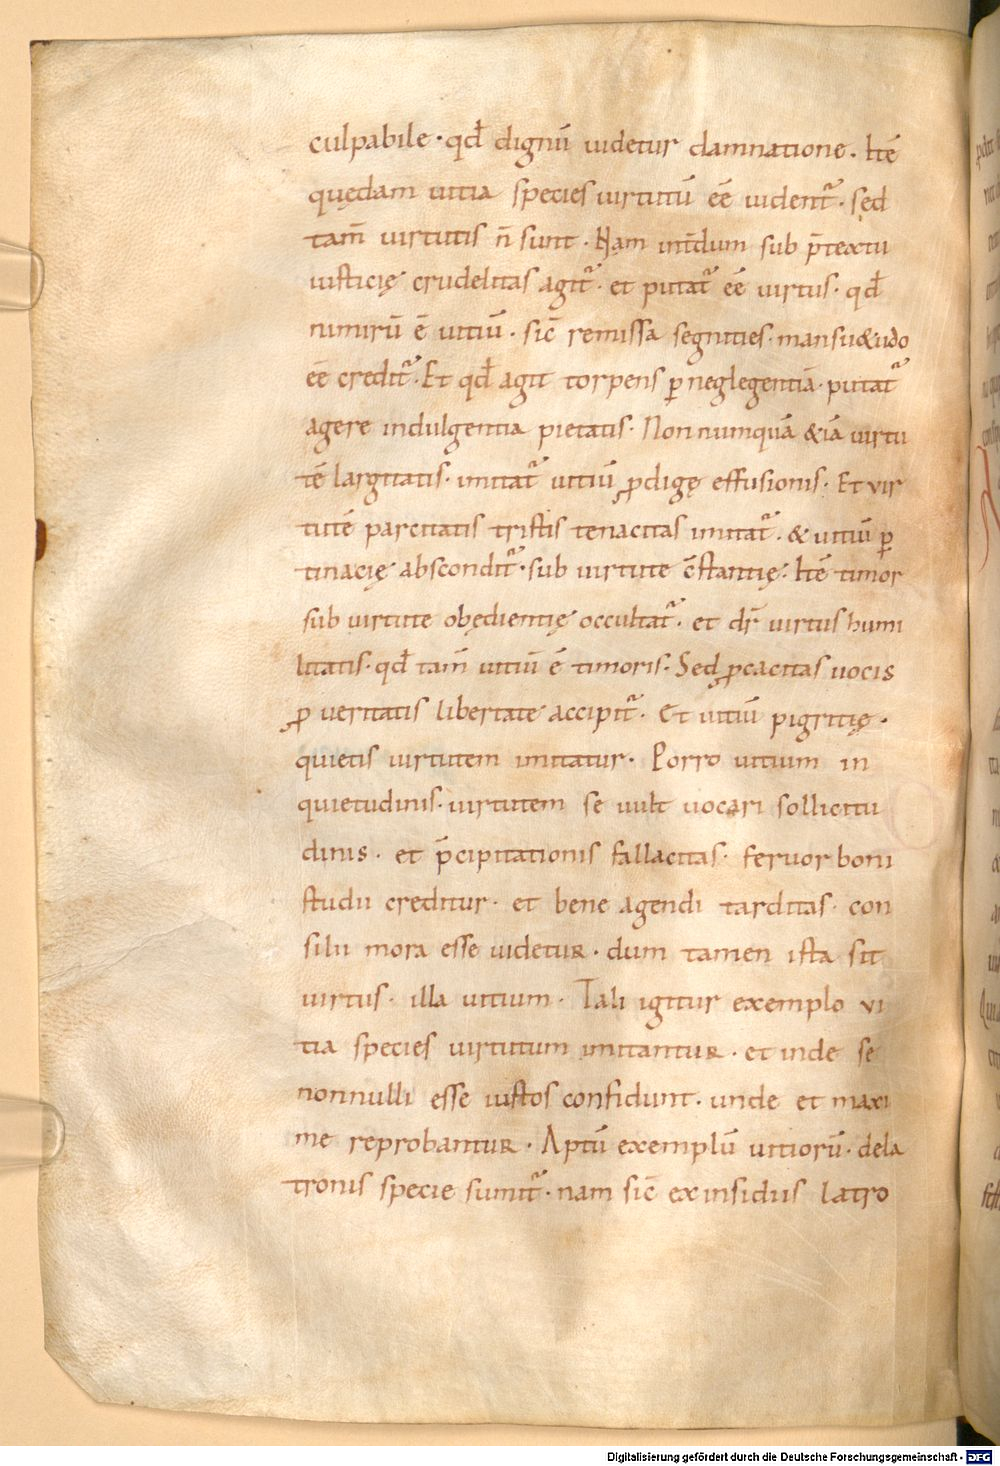 culpabile · qđ dignū uidetur damnatione . Itē
quędam uitia species uirtutū eē uident᷑ · sed
tam̄ uirtutis n̄ sunt · Nam int̄dum sub p̄textu
iusticię crudelitas agit᷑ · et putat᷑ eē uirtus · qđ
nimirū ē uitiū · sic̄ remissa segnities · mansu&udo
eē credit᷑ · Et qđ agit torpens ꝑ neglegentiā · putat᷑
agere indulgentia pietatis · Non numquā &iā uirtu
tē largitatis · imitat᷑ uitiū ꝓdigę effusionis · Et vir
tutē parcitatis tristis tenacitas imitat᷑ . & uitiū ꝑ
tinacię abscondit᷑ · sub uirtute c̄stantię · Itē timor
sub uirtute obędientię occultat᷑ . et dr̄ uirtus humi
litatis · qđ tam̄ uitiū ē timoris · Sed ꝓcacitas uocis
ꝓ ueritatis libertate accipit᷑ · Et uitiū pigritię ·
quietis uirtutem imitatur · Porro uitium in
quietudinis · uirtutem se uult uocari sollicitu
dinis · et p̄cipitationis fallacitas · feruor boni
studii creditur · et bene agendi tarditas · con
silii mora esse uidetur · dum tamen ista sit
uirtus · illa uitium · Tali igitur exemplo vi
tia species uirtutum imitantur · et inde se
nonnulli esse iustos confidunt · unde et maxi
me reprobantur · Aptū exemplū uitiorū · de la
tronis specie sumit᷑ · nam sic̄ ex insidiis latro
Digitalisierung gefördert durch die Deutsche Forschungsgemeinschaft - DFG